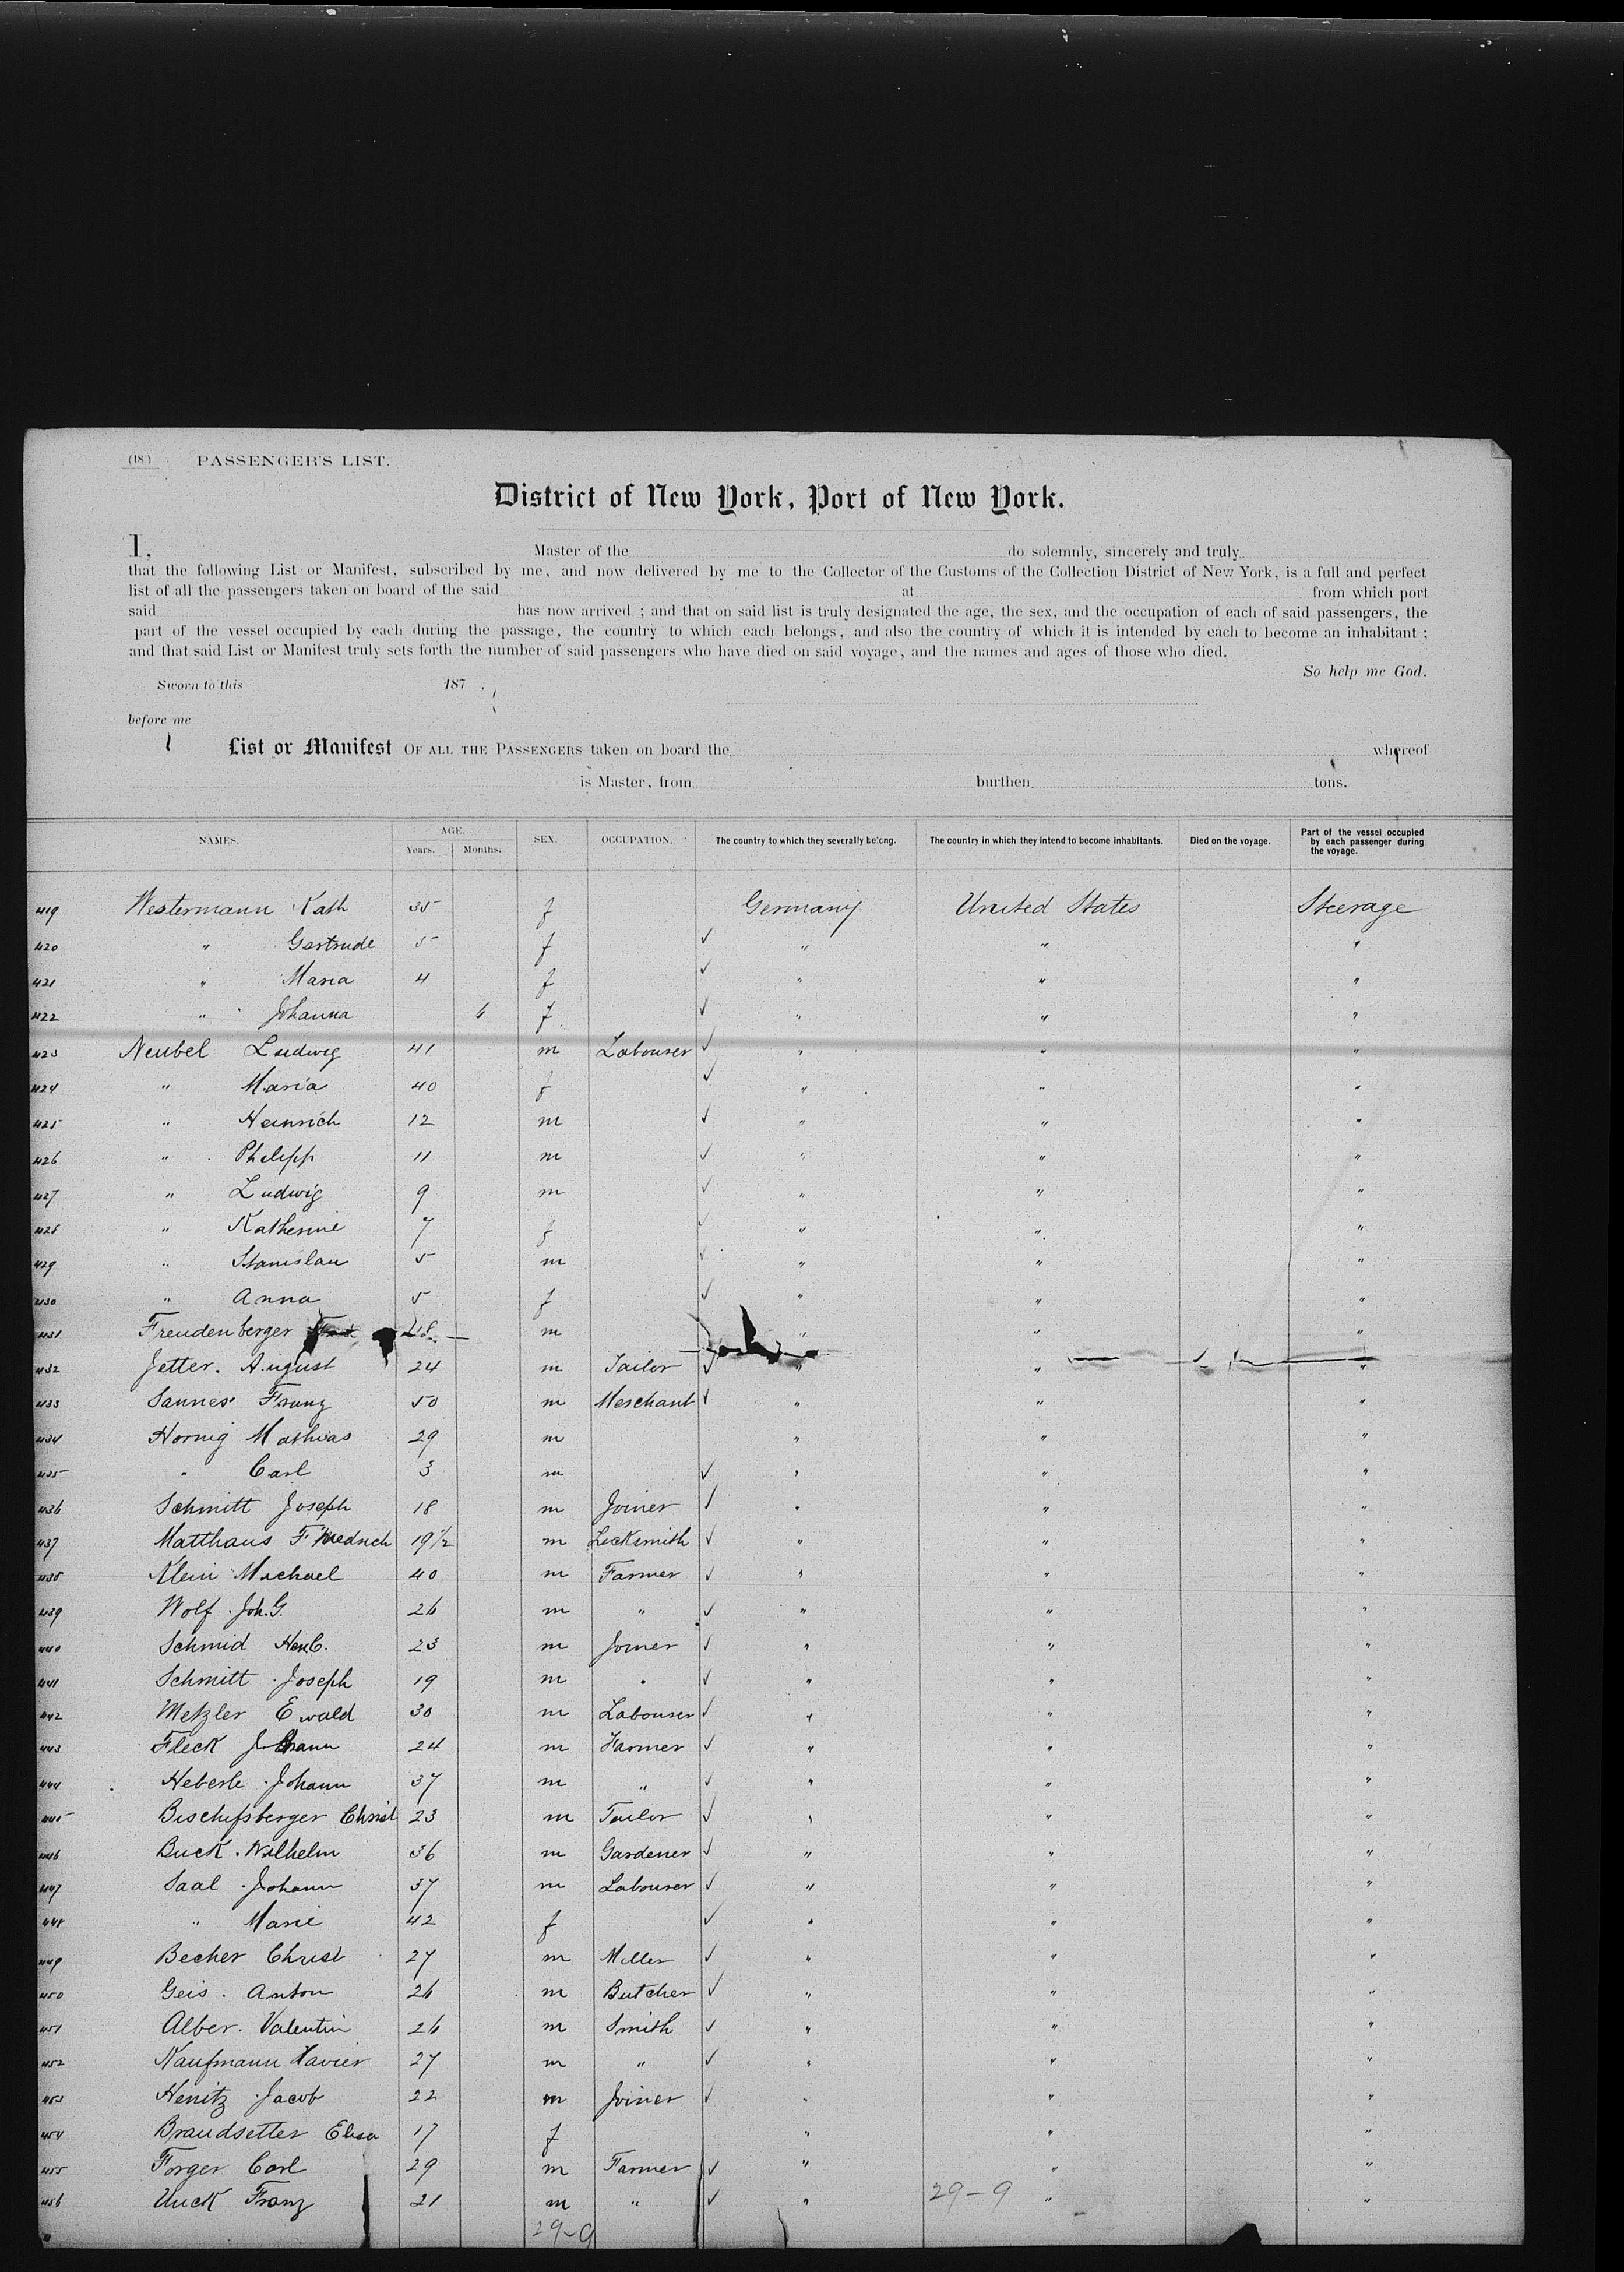 (18) PASSENGER'S LIST.
District of New York, Port of New York.
I, Master of the do solemnly, sincerely and truly
that the following List or Manifest, subscribed by me, and now delivered by me to the Collector of the Customs of the Collection District of New York, is a full and perfect
list of all the passengers taken on board of the said at from which port
said has now arrived ; and that on said list is truly designated the age, the sex, and the occupation of each of said passengers, the
part of the vessel occupied by each during the passage, the country to which each belongs, and also the country of which it is intended by each to become an inhabitant ;
and that said List or Manifest truly sets forth the number of said passengers who have died on said voyage, and the names and ages of those who died.
So help me God.
Sworn to this 187 .
before me
List or Manifest OF ALL THE PASSENGERS taken on board the whereof
is Master, from burthen tons.
NAMES. AGE. Years. Months. SEX. OCCUPATION. The country to which they severally belong. The country in which they intend to become inhabitants. Died on the voyage. Part of the vessel occupied by each passenger during the voyage.
419 Westermann Kath 35 f Germany United States Steerage
420 " Gertrude 5 f ✓ " " "
421 " Maria 4 f ✓ " " "
422 " Johanna 6 f ✓ " " "
423 Neubel Ludwig 41 m Labourer ✓ " " "
424 " Maria 40 f ✓ " " "
425 " Heinrich 12 m ✓ " " "
426 " Philipp 11 m ✓ " " "
427 " Ludwig 9 m ✓ " " "
428 " Katherine 7 f ✓ " " "
429 " Stanislau 5 m ✓ " " "
430 " Anna 5 f ✓ " " "
431 Freudenberger 48 m " " "
432 Jetter. August 24 m Tailor ✓ " " "
433 Sannes Franz 50 m Merchant ✓ " " "
434 Hornig Mathias 29 m " " "
435 " Carl 3 m ✓ " " "
436 Schmitt Joseph 18 m Joiner ✓ " " "
437 Matthaus Friedrich 19½ m Locksmith ✓ " " "
438 Klein Michael 40 m Farmer ✓ " " "
439 Wolf Joh. G. 26 m " ✓ " " "
440 Schmid 23 m Joiner ✓ " " "
441 Schmitt Joseph 19 m " ✓ " " "
442 Metzler Ewald 30 m Labourer ✓ " " "
443 Fleck Johann 24 m Farmer ✓ " " "
444 Heberle Johann 37 m " ✓ " " "
445 Bischofsberger Christ 23 m Tailor ✓ " " "
446 Buck. Wilhelm 36 m Gardener ✓ " " "
447 Saal Johann 37 m Labourer ✓ " " "
448 " Marie 42 f ✓ " " "
449 Becher Christ 27 m Miller ✓ " " "
450 Geis. Anton 26 m Butcher ✓ " " "
451 Alber. Valentin 26 m Smith ✓ " " "
452 Kaufmann Xavier 27 m " ✓ " " "
453 Henitz Jacob 22 m Joiner ✓ " " "
454 Brandsetter Elisa 17 f " " "
455 Forger Carl 29 m Farmer ✓ " " "
456 Uuck Franz 21 m " ✓ " 29-9 " "
29-9